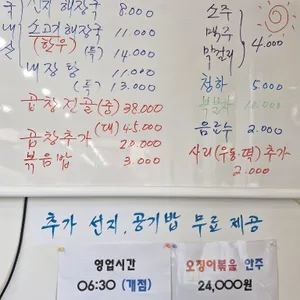 국 선지해장국 8.000
내 소고기해장국 11.000
(한우) (특) 14.000
내장탕 11.000
(특) 13.000
곱창전골(중) 38.000
(대) 45.000
곱창추가 20.000
볶음밥 3.000
소주
맥주 4.000
막걸리
청하 5.000
음료수 2.000
사리(우동.떡)추가
2.000
추가 선지.공기밥 무료 제공
영업시간
06:30 (개점)
오징어볶음 안주
24,000원